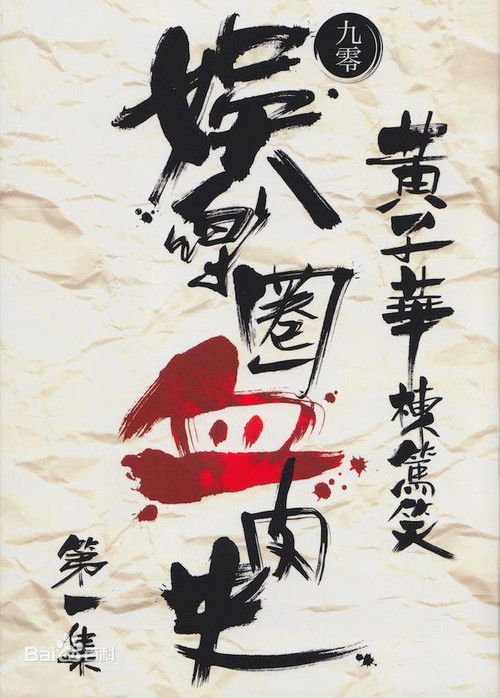 黃子華棟篤笑
九零
娛樂圈血肉史
第一集
Baidu百科